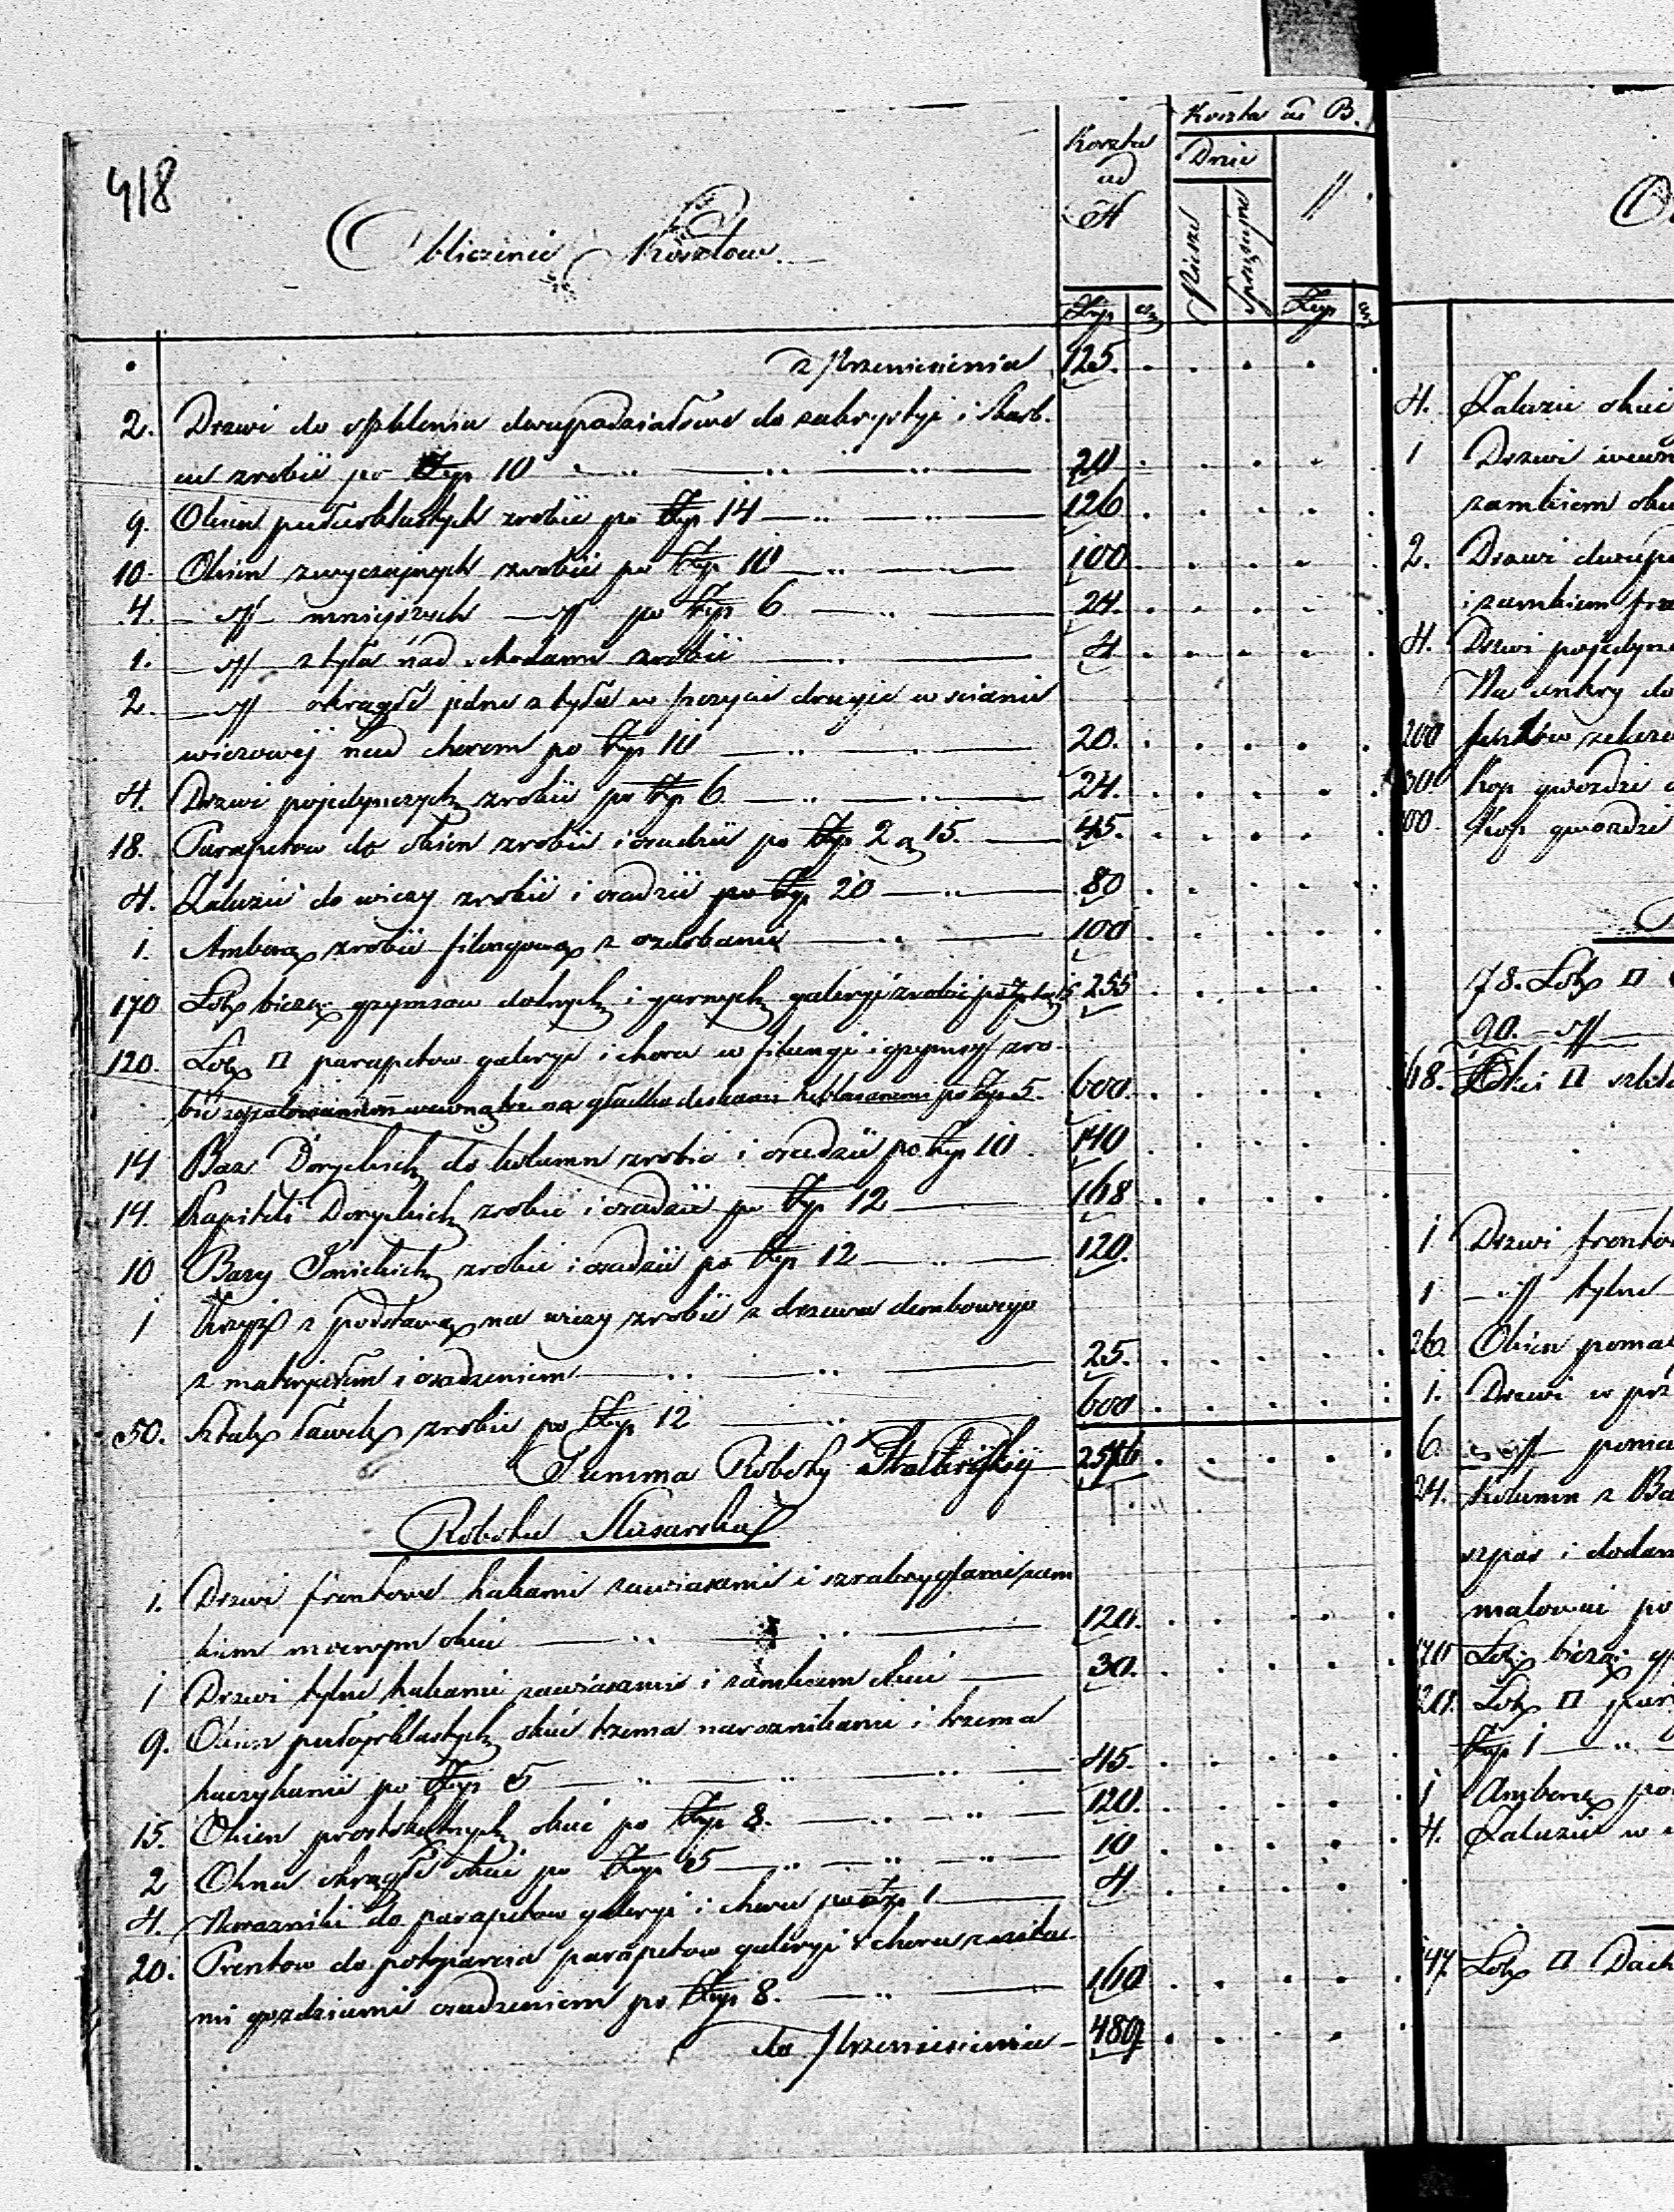 418
Obliczenie Kosztow.
Koszta ad A
Koszta ad B.
Dnie
Piesze
Sprzężajne
Złp gr
Złp gr
z Przeniesienia 125.
2. Drzwi do dwupodziałowe do zakrystyi i Skarb-
cu zrobić po Złp 10 20
9. Okien pułcerklastych zrobić po Złp 14 126
10 Okien zwyczajnych zrobić po Złp 10 100
4. — " — mniejszych — " po Złp 6 24.
1. — " — z tyłu nad schodami zrobić 4
2. — " okrągłe jedne z tyłu w sczycie drugie w scianie
wiezowej nad chorem po Złp 10 20.
4. Drzwi pojedynczych zrobić po Złp 6 24.
18. Parapetow do okien zrobić i osadzić po Złp 2 gr 15. 45.
4. Zaluzii do wiezy zrobić i osadzić po Złp 20 80
1. Ambonę zrobić filongową z ozdobami 100
170 Łok bieżą: gzymsow dolnych i gurnych galeryi zrobić po Złp 1 gr 15 255
120. Łok □ parapetow galeryi i choru w filungi i gzymsy zro-
bić wewnątrz na gładko deskami heblowanemi po Złp 5. 600.
14 Baz Doryckich do kolumn zrobić i osadzić po Złp 10 140
14. Kapiteli Doryckich zrobić i osadzić po Złp 12 168
10 Bazy Jonickich zrobić i osadzić po Złp 12 120.
1 Krzyż z podstawą na wiezy zrobić z drzewa dembowego
z materyałem i osadzeniem 25.
50. Sztuk ławek zrobić po Złp 12 600
Summa Roboty Stolarskiy 2576
Robota Slusarska
1. Drzwi frontowe hakami zawiasami i szrabryglami zam
kiem mocnym okuć 120.
1 Drzwi tylne hakami zawiasami i zamkiem okuć 30.
9. Okien pułcyrklastych okuć trzema naroznikami i trzema
haczykami po Złp 5 45.
15. Okien prostokątnych okuć po Złp 8. 120.
2 Okna okrągłe okuć po Złp 5 10
4. Narozniki do parapetow galeryi i choru po Złp 1 4
20. Prentow do podparcia parapetow galeryi i choru z nita
mi gozdziami osadzeniem po Złp 8. 160
do Przeniesienia 489
4. Zaluzie okuć
1 Drzwi
zamkiem
2. Drzwi
i zamkiem
4. Drzwi
Na ankry do
200 funtów
Kop gwozdzi
Kop gwozdzi
78. Łok □
90. — "
□
1 Drzwi
1 — " tylne
26. Okien
1. Drzwi w
6. — "
24. Kolumn z
szpar i
malować po
Łok bieżą:
Łok □
Złp 1
1 Ambonę
4. Zaluzii w
Łok □ Dach